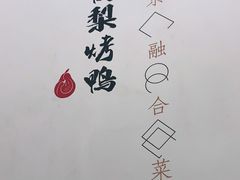 梨烤鸭
融合菜